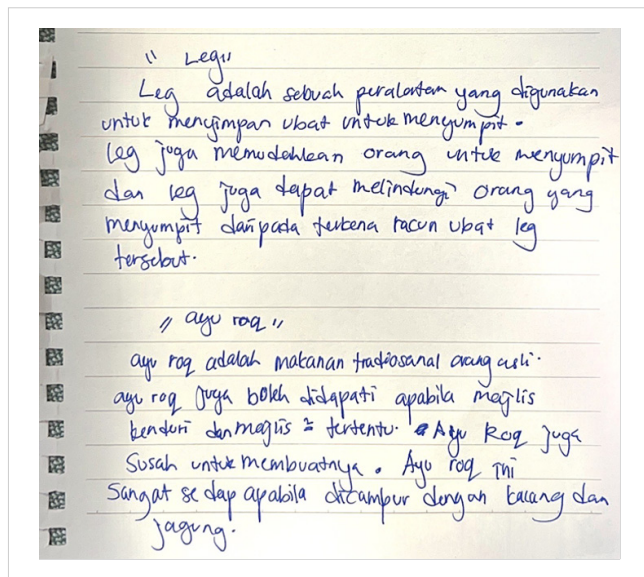 " Leg "
Leg adalah sebuah peralatan yang digunakan
untuk menyimpan ubat untuk menyumpit.
Leg juga memudahkan orang untuk menyumpit
dan leg juga dapat melindungi orang yang
menyumpit daripada terkena racun ubat leg
tersebut.
" ayu roq "
ayu roq adalah makanan tradiosanal orang asli.
ayu roq juga boleh didapati apabila majlis
kenduri dan majlis = tertentu. Ayu Roq juga
Susah untuk membuatnya. Ayu roq ini
Sangat sedap apabila dicampur dengan kacang dan
jagung.